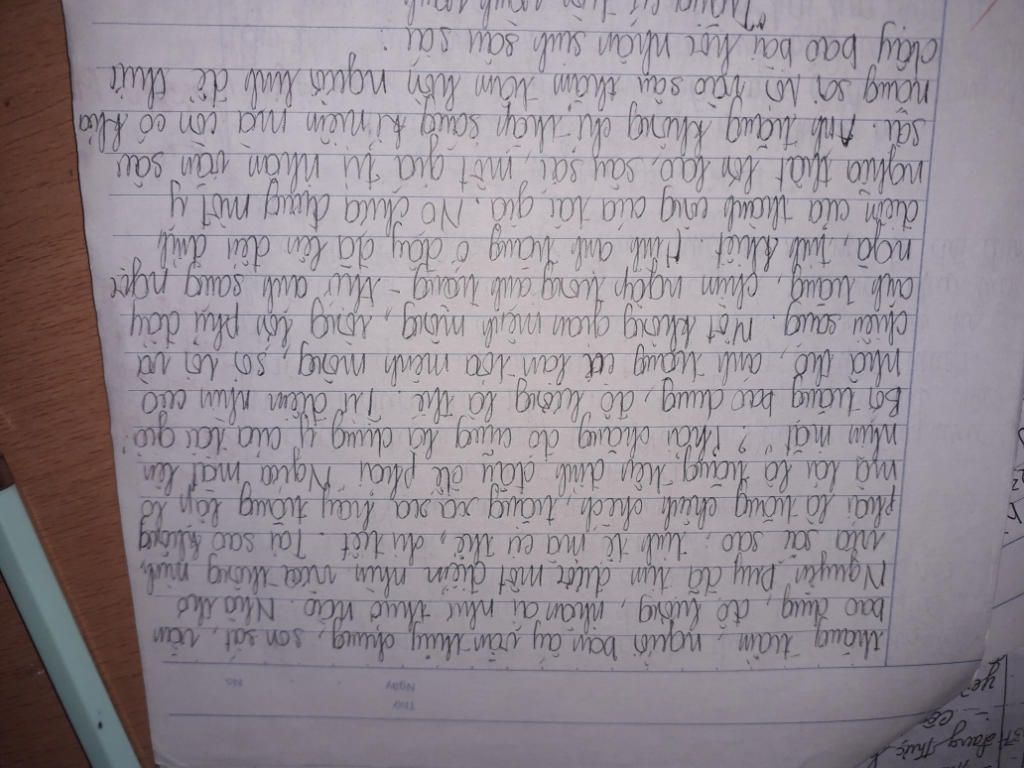 Thứ
Ngày
No.
thăng trầm, người bạn ấy vẫn thủy chung, son sắt, vẫn
bao dung, độ lượng, nhân ái như thuở nào. Nhà thơ
Nguyễn Duy đã tìm được một điểm nhìn vừa thông minh
vừa sai sao, tinh tế mà cụ thể, du tiết. Tại sao không
phải là trăng chênh chếch, trăng xa xa hay trăng lấp ló
mà lại là trăng trên đỉnh đầu để phải "Ngửa mặt lên
nhìn mặt"? Phải chăng đó cũng là dụng ý của tác giả
Bởi trăng bao dung, độ lượng là thế, Từ điểm nhìn cao
nhã đó, ánh trăng cứ lan tỏa mênh mông, soi rọi và
chiếu sáng. Một không gian mênh mông, rộng lớn phủ đầy
ánh trăng, chìm ngập trong ánh trăng - thứ ánh sáng ngọc
ngà, tinh khiết. Hình ánh trăng ở đây đã lên đến đỉnh
điểm của thành công của tác giả. Nó chứa đựng một ý
nghĩa thật lớn lao, sâu sắc, một giá trị nhân văn sâu
sắc. Ánh trăng không chỉ thắp sáng kỉ niệm mà còn có khả
năng soi rõ vào sâu thẳm tâm hồn người lính để thức
dậy bao bài học nhân sinh sâu sắc.